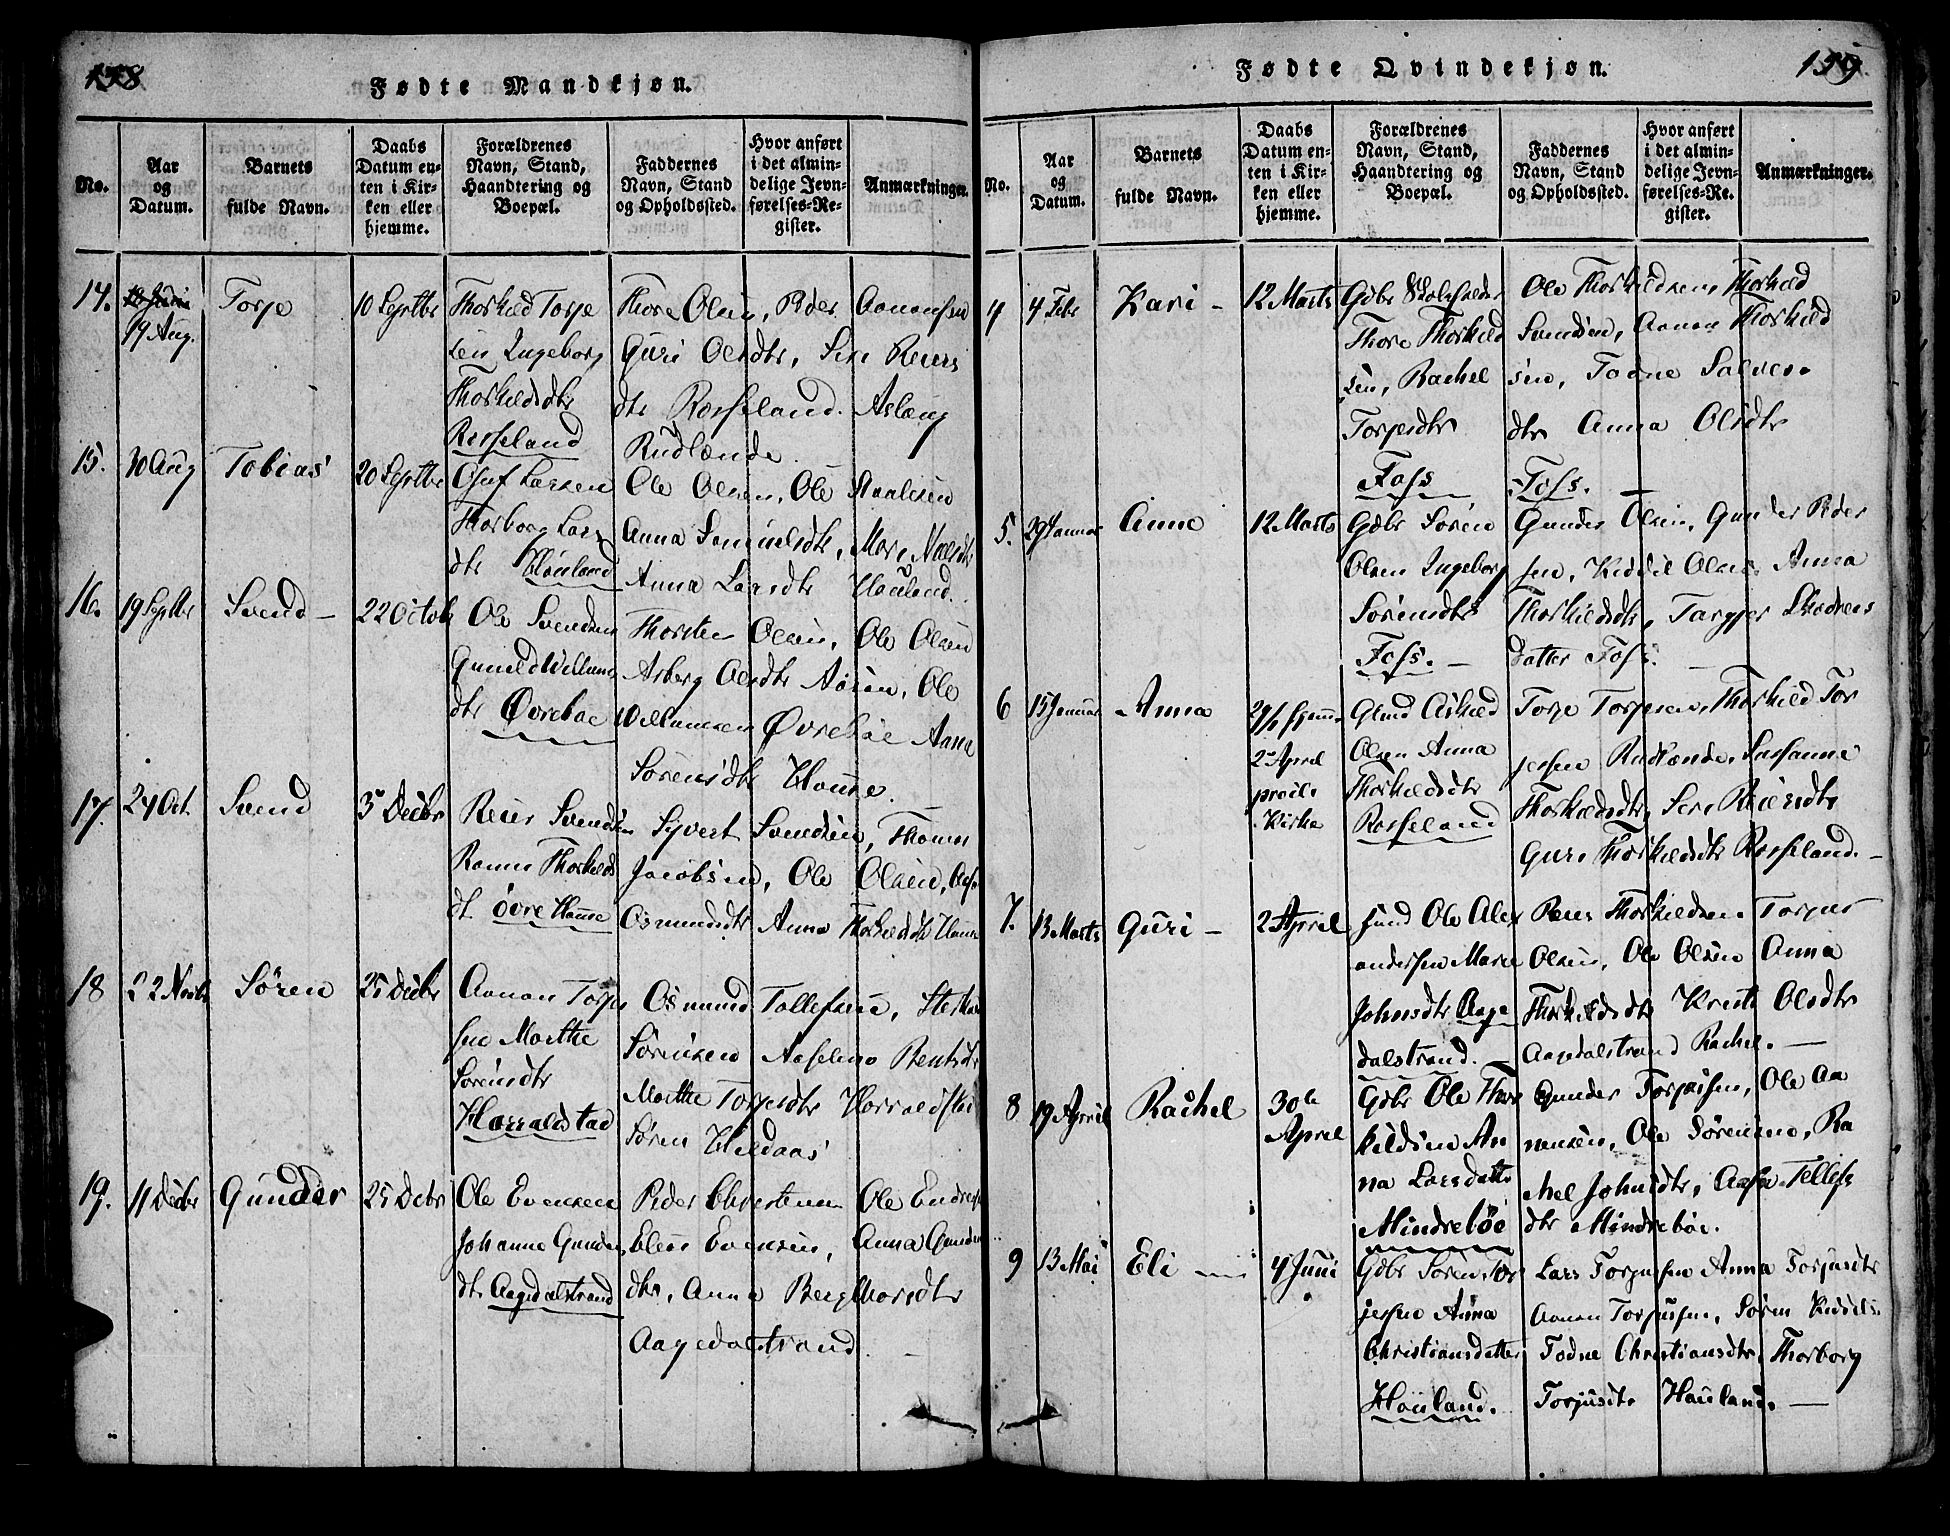 158
Fødte Mandkjøn.
No.
Aar
og
Datum.
Barnets
fulde Navn.
Daabs
Datum en-
ten i Kir-
ken eller
hjemme.
Forældrenes
Navn, Stand,
Haandtering og
Boepæl.
Faddernes
Navn, Stand
og Opholdssted.
Hvor anført
i det almin-
delige Jevn-
førelses-Re-
gister.
Anmærkninger.
14.
19 Aug.
Torje
10 Septbr
Thorkild Torje
sen Ingeborg
Thorkildsdtr
Rosseland
Thore Olsen, Peder Aanensen
Guri Olsdtr, Siri Reiers
dtr Rosseland. Aslaug
Rudlænde.
15.
30 Aug
Tobias
20 Septbr
Oluf Larsen
Thorborg Lars
dtr Houland
Ole Olsen, Ole Aanlesen
Anna Samuelsdtr, Mari Nielsdtr
Anna Larsdtr Houland.
16.
19 Septbr
Svend –
22 Octob
Ole Svendsen
Gunild Willums
dtr Øvrebøe
Thorsten Olsen, Ole Olsen
Asberg Olsdtr Aasen, Ole
Willumsen Øvrebøe Anna
Sørensdtr House.
17.
24 Oct.
Svend
3 Decbr
Reier Svendsen
Thorkilds
dt. øvre House
Syvert Svendsen, Thomas
Jacobsen, Ole Olsen,
Osmundsdtr Anna Thorkildsdtr House
18
22 Novbr
Søren
25 Decbr
Aanon Torjus
sen Marthe
Sørensdtr
Harraldstad
Osmund Tollefsen,
Sørensen Berntsdtr
Marthe Torjesdtr Harraldstad
Søren Hildaas
19.
11 Decbr
Gunder
25 Decbr
Ole Evensen
Johanne Gunders
dtr Aagedalstrand
Peder Christensen Ole Endres
Evensen, Anna Gunders
dtr, Anna Berglhorsdtr
Aagedalstrand.
159
Fødte Qvindekjøn.
No.
Aar
og
Datum.
Barnets
fulde Navn.
Daabs
Datum en-
ten i Kir-
ken eller
hjemme.
Forældrenes
Navn, Stand,
Haandtering og
Boepæl.
Faddernes
Navn, Stand
og Opholdssted.
Hvor anført
i det almin-
delige Jevn-
førelses-Re-
gister.
Anmærkninger.
4
4 Febr
Kari –
12 Marts
Gdbr Skoleholder
Thore Thorkild
sen, Rachel
Torjesdtr
Foss
Ole Thorkildsen, Thorkild
Svendsen, Aanon Thorkild
sen, Todne Salves
dtr Anna Olsdtr
Foss. –
5.
29 Januar
Anne
12 Marts
Gdbr Søren
Olsen Ingeborg
Sørensdtr
Foss. –
Gunder Olsen, Gunder Peder
sen, Kiddel Olsen Anna
Thorkildsdtr, Targjer
Datter Foss. –
6
15 Januar
Anna
29/1 hjemme
2 April
præs. i
Kirke
Gmd Askild
Olsen Anna
Thorkildsdtr
Rosseland
Torje Torjesen, Thorkild Tor
jessen Rudlænde, Sussanne
Thorkildsdtr, Siri Reiersdtr
Guri Thorkildsdtr Rosseland. –
7.
13 Marts
Guri –
2 April
Huusmd Ole Alex
andersen Marie
Johnsdtr Aage
dalstrand. –
Reier Thorkildsen. Torjus
Olsen, Ole Olsen Anna
Thorkildsdtr Kristi Olsdtr
Aagedalstrand Rachel. –
8
19 April
Rachel
30te
April
Gdbr Ole Thor
kildsen An
na Larsdatter
Mindrebøe
Gunder Torjussen, Ole Aa
nensen, Ole Sørensen, Ra
chel Johnsdtr, Aasa Tellefs
dtr Mindrebøe.
9
13 Mai
Eli –
4 Juni
Gdbr Søren Tor
jessen Anna
Christiansdatter
Houland.
Lars Torjusen Anna Torjusdtr
Aanon Torjussen, Søren Kiddels
Todne Christiansdtr, Thorborg
Torjusdtr Houland. –